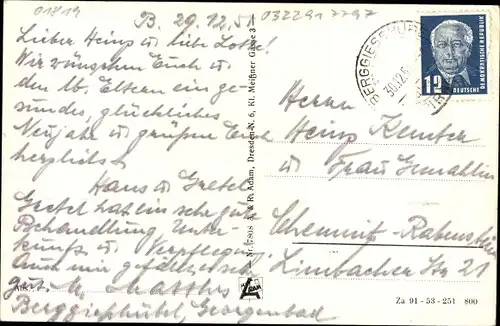 01819
B. 29.12.51
0322917797
Lieber Heinz u. liebe Lotte!
Wir wünschen Euch u.
den lb. Eltern ein ge-
sundes, glückliches
Neujahr u. grüßen Euch
herzlichst
Hans u. Gretel
Gretel hat ein sehr gute
Behandlung Unter-
kunft u. Verpflegg.
Auch mir gefällt es sehr
gut
Berggießhübel, Georgenbad
A. & R. Adam, Dresden-N. 6, Kl. Meißner Gasse 3
BERGGIESSHÜBEL
30.12.5
DEUTSCHE DEMOKRATISCHE REPUBLIK
12
DEUTSCHE
Herrn
Heinz Klemter
u. Frau Gemahlin
Chemnitz-Rabenstein
Limbacher Str. 21
Za 91-53-251 800